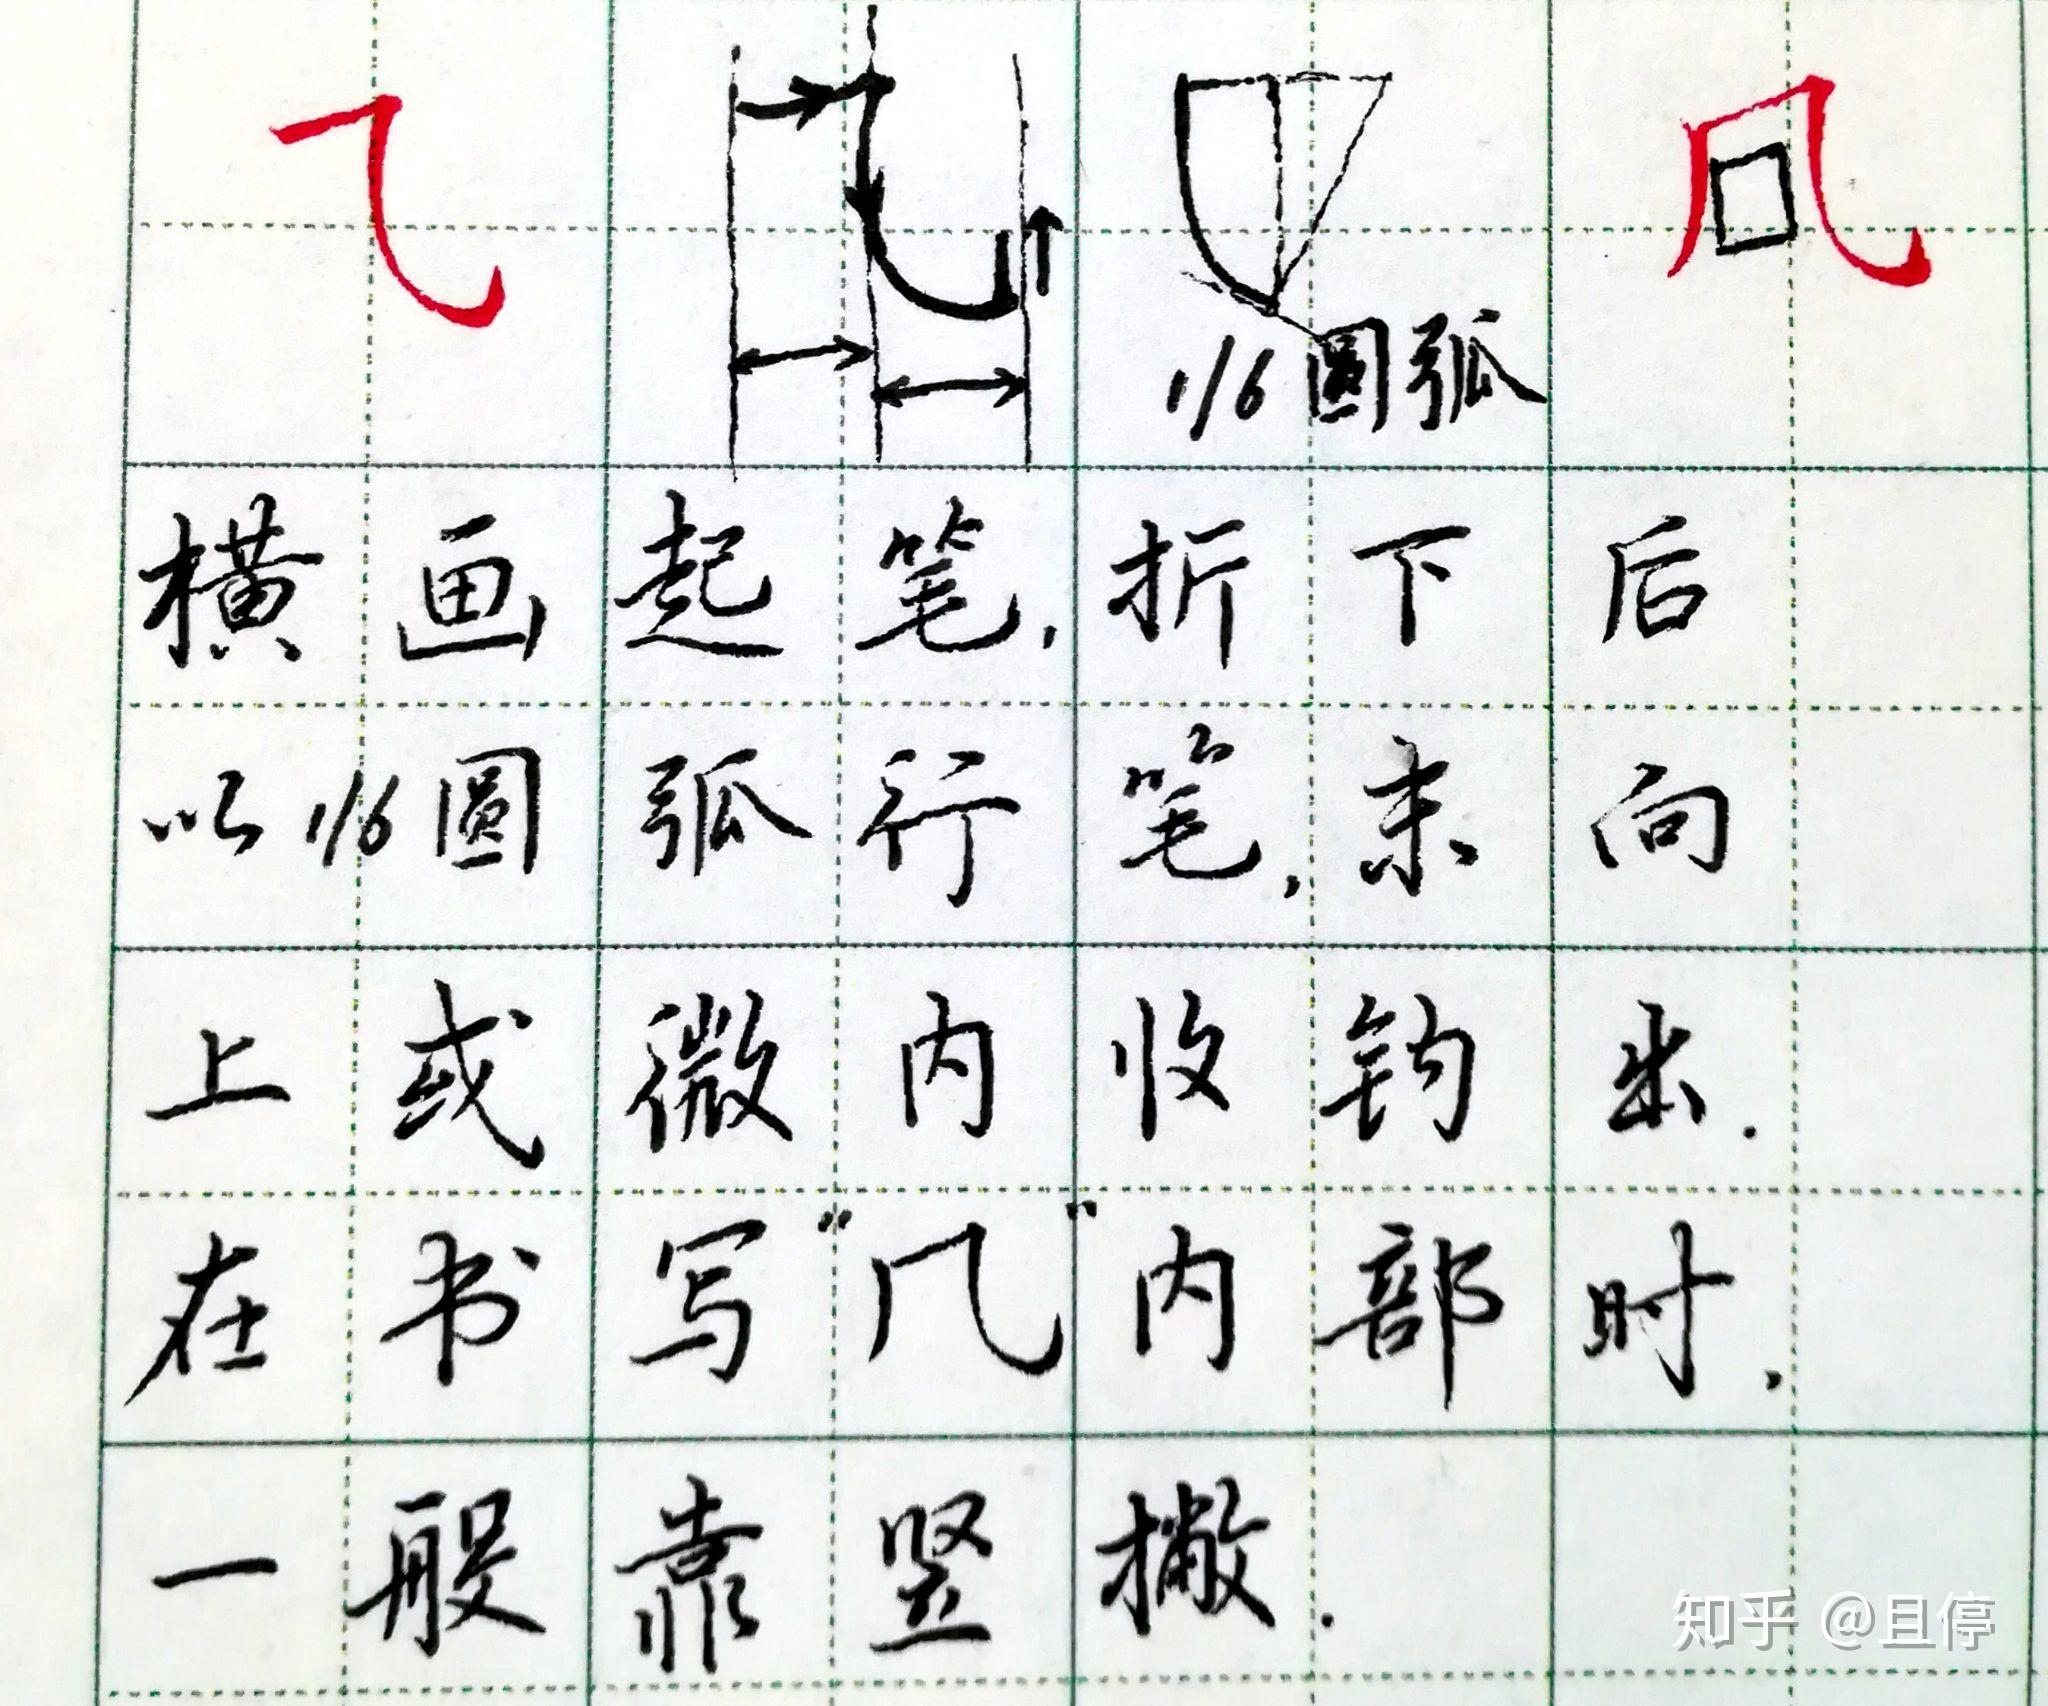 1/6圆弧
横画起笔,折下后
以1/6圆弧行笔,末向
上或微内收钩出.
在书写“⺇”内部时.
一般靠竖撇.
知乎 @且停